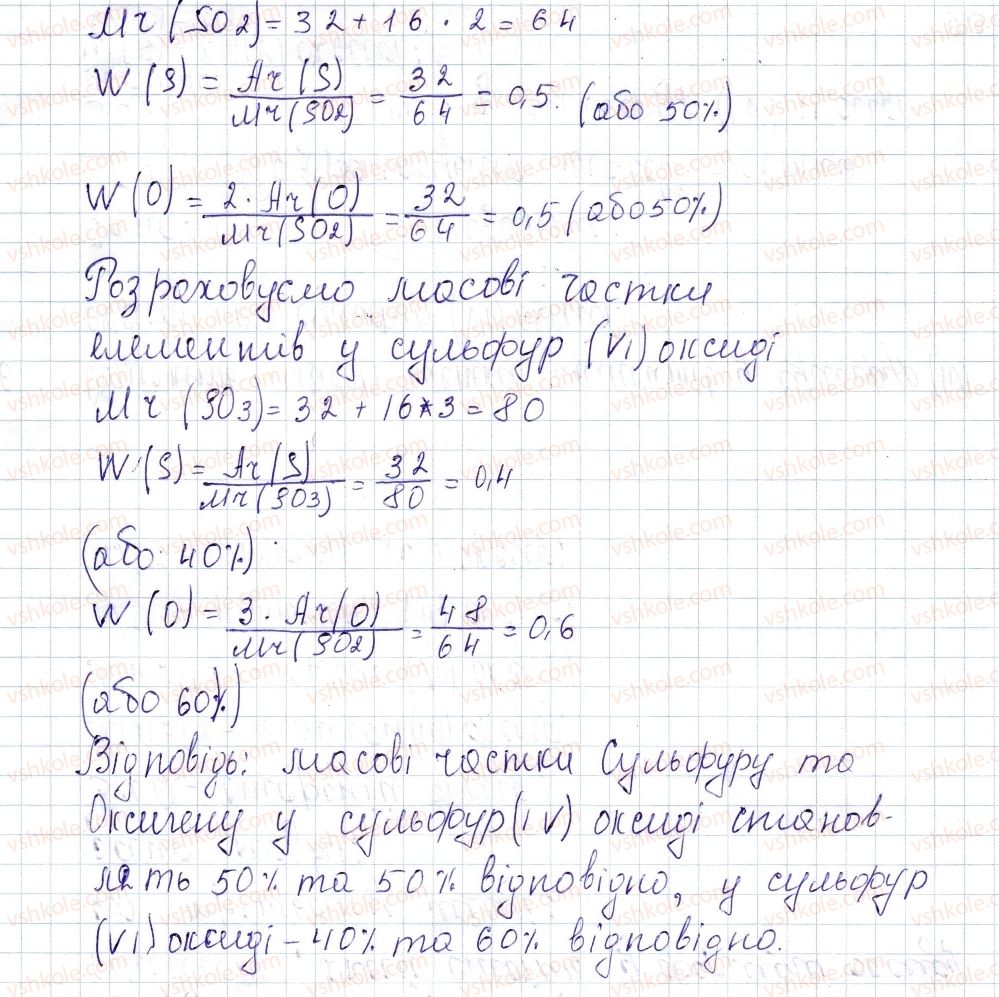 Mr (SO2) = 32 + 16 · 2 = 64
W (S) = Ar (S) / Mr (SO2) = 32 / 64 = 0,5. (або 50%)
W (O) = 2 · Ar (O) / Mr (SO2) = 32 / 64 = 0,5 (або 50%)
Розраховуємо масові частки
елементів у сульфур (VI) оксиді
Mr (SO3) = 32 + 16*3 = 80
W (S) = Ar (S) / Mr (SO3) = 32 / 80 = 0,4
(або 40%)
W (O) = 3 · Ar (O) / Mr (SO2) = 48 / 64 = 0,6
(або 60%)
Відповідь: масові частки Сульфуру та
Оксигену у сульфур (IV) оксиді станов-
лять 50% та 50% відповідно, у сульфур
(VI) оксиді – 40% та 60% відповідно.
vshkole.com